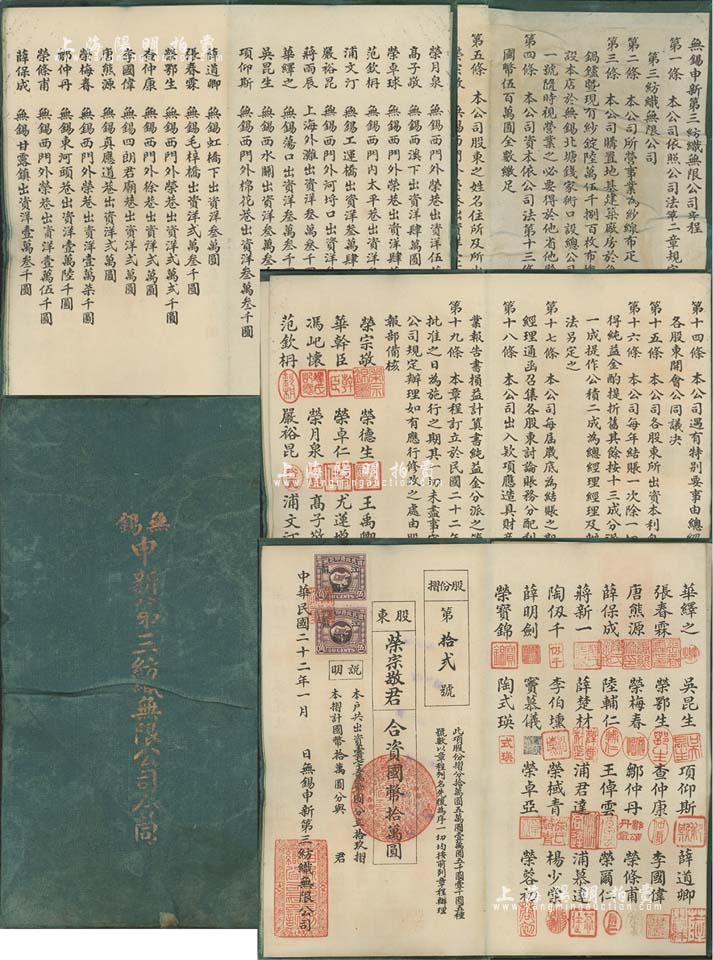 上海陽明拍賣
無錫申新第三紡織無限公司章程
第一條 本公司依照公司法第二章規定
第三紡織無限公司
第二條 本公司所營事業為紗線布疋
第三條 本公司購置地基建築廠房於
錫鑪暨現有紗錠陸萬伍千捌百枚布機
設本店於無錫北塘錢家術口設總公司
一號隨時視營業之必要得於他省他縣
第四條 本公司資本依公司法第十三條
國幣伍百萬圓全數繳足
第五條 本公司股東之姓名住所及所出
榮宗敬 無錫西門外榮巷出資洋
榮月泉 無錫西門外榮巷出資洋伍萬
高子敬 無錫西溪下出資洋肆萬圓
榮卓球 無錫西門外榮巷出資洋肆
范欽枬 無錫西門內太平巷出資洋
浦文汀 無錫工運橋出資洋叁萬
嚴裕昆 無錫西門外河埒口出資洋
蔣雨辰 上海外灘出資洋叁萬叁千
華繹之 無錫蕩口出資洋叁萬叁千圓
吳昆生 無錫西水關出資洋叁萬叁千圓
項仰斯 無錫西門外棉花巷出資洋叁萬叁千圓
薛道卿 無錫虹橋下出資洋叁萬圓
張春霖 無錫毛梓橋出資洋貳萬叁千圓
榮鄂生 無錫西門外榮巷出資洋貳萬貳千圓
查仲康 無錫西門外徐巷出資洋貳萬圓
李國偉 無錫四郎君廟巷出資洋貳萬圓
唐熊源 無錫真應道巷出資洋貳萬圓
榮梅春 無錫西門外榮巷出資洋壹萬柒千圓
鄒仲丹 無錫東河頭巷出資洋壹萬陸千圓
榮條甫 無錫西門外榮巷出資洋壹萬伍千圓
薛保成 無錫甘露鎮出資洋壹萬叁千圓
第十四條 本公司遇有特別要事由總經
各股東開會公同議決
第十五條 本公司各股東所出資本利息
第十六條 本公司每年結賬一次除一切
得純益金酌提折舊其餘按十三成分派
一成提作公積二成為總經理經理及辦
法另定之
第十七條 本公司每屆歲底為結賬之期
經理通函召集各股東討論賬務分配利
第十八條 本公司出入欵項應造具財產
業報告書損益計算書純益金分派之
第十九條 本章程訂立於民國二十二年
批准之日為施行之期其一切未盡事宜
公司規定辦理如有應行修改之處由股
報部備核
榮宗敬 榮德生 王禹卿
華幹臣 榮卓仁 尤蓮增
馮屺懷 榮月泉 高子敬
范欽枬 嚴裕昆 浦文汀
無錫
申新第三紡織無限公司合同
股份摺
第拾貳號
此項股份摺分拾萬圓五萬圓壹萬圓五千圓壹千圓五種
號數以章程列名先後為序一切均按前列章程辦理
股東
榮宗敬君
合資國幣拾萬圓
說明
本戶共出資
本摺計國幣拾萬圓分與 君
中華民國二十二年一月 日無錫申新第三紡織無限公司
華繹之 吳昆生 項仰斯 薛道卿
張春霖 榮鄂生 查仲康 李國偉
唐熊源 榮梅春 鄒仲丹 榮條甫
薛保成 陸輔仁 王倬雲 榮爾仁
蔣新一 薛楚材 浦君達 浦慕達
陶伋千 李伯壎 榮棫青 楊少棠
薛明劍 竇慕儀 榮卓亞 榮蓉初
榮寶錦 陶式瑛
上海陽明拍賣
www.yangmingauction.com